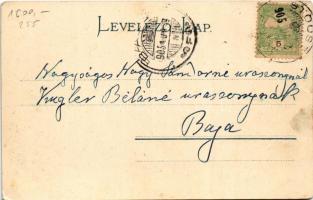 1600,-
255
LEVELEZŐ-LAP.
905
5
Nagyságos Nagy Sándorné uraszonynál
Kugler Béláné uraszonynak
Baja